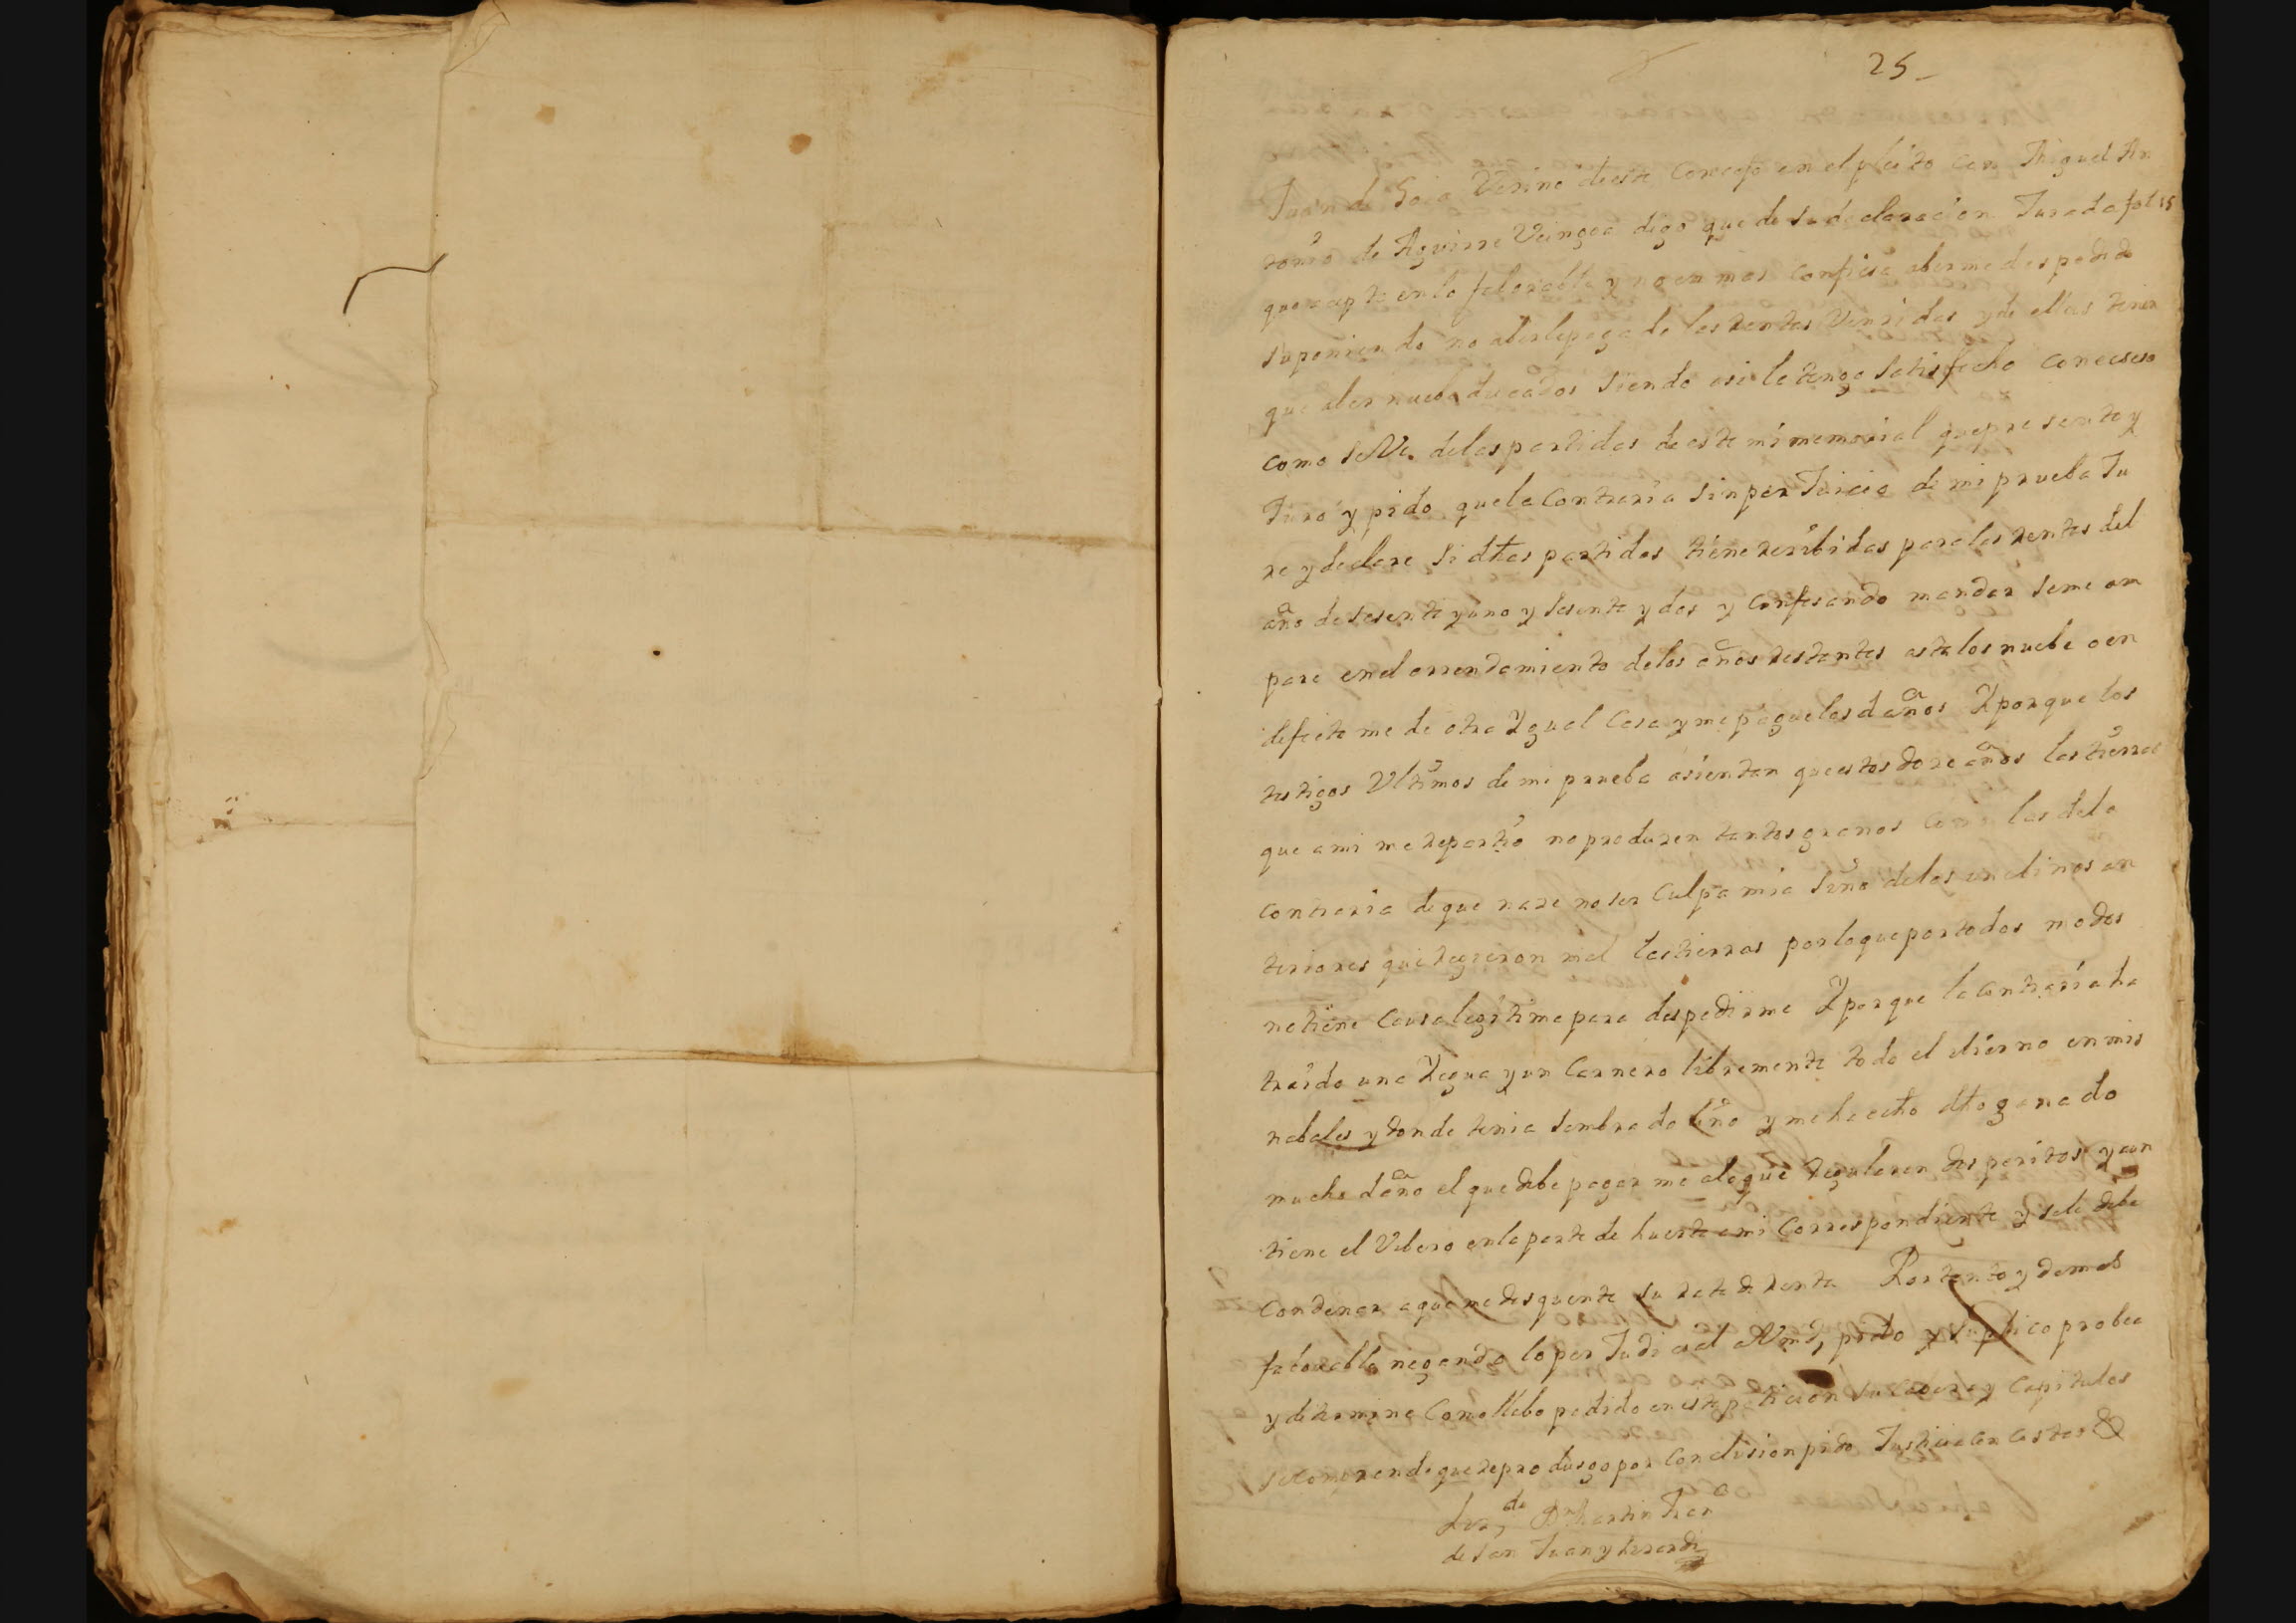 25
Juan de Goia Vesino deeste Concejo en el pleito con Miguel An
tonio de Aguirre Veingoa digo que de su declaracion Jurada fol 15
que acepto en lo faborable y no en mas confiesa aberme despedido
suponiendo no aberle pagado las rentas Vensidas y de ellas tener
que aber nuebe ducados siendo asi le tengo satisfecho con eseso
como se Ve. de las partidas de este mi memorial que presento y
Juro y pido que la Contraria sin per Juicio de mi prueba Ju
re y declare si dhas partidas tiene reribidas para las rentas del
año de sesente y uno y sesente y dos y confesando mandar se me am
pare en el arrendamiento de los años restantes asta los nuebe o en
defecto me de otra Ygual Casa y me pague los daños Y porque los
testigos Vltimos de mi prueba asientan que estos dore años las tierras
que a mi me repartio no produren tantos granos como las de la
contraria de que nare no ser Culpa mia sino de los inclinos an
teriores que regieron mal las tierras por lo que por todos modos
no tiene Causa legitima para despedirme Y porque la contraria ha
traido una Yegua y un Carnero libremente todo el ibierno en mis
nabales y donde tenia sembrado lino y me ha echo dho ganado
mucho daño el que debe pagar me a lo que regularen dos peritos y aun
tiene el Vibero en la parte de huerta a mi Correspondiente y se le debe
Condenar a que me desquente su rate de renta Por tanto y demas
faborable negando lo per Judicial a Vmd, pido y suplico probea
y determine Como llebo pedido en este peticion su cabeza y Capitulos
se comprende que reprodusgo por conclusion pido Justicia con costas &
Lizdo Dn Martin Fran
de San Juan y